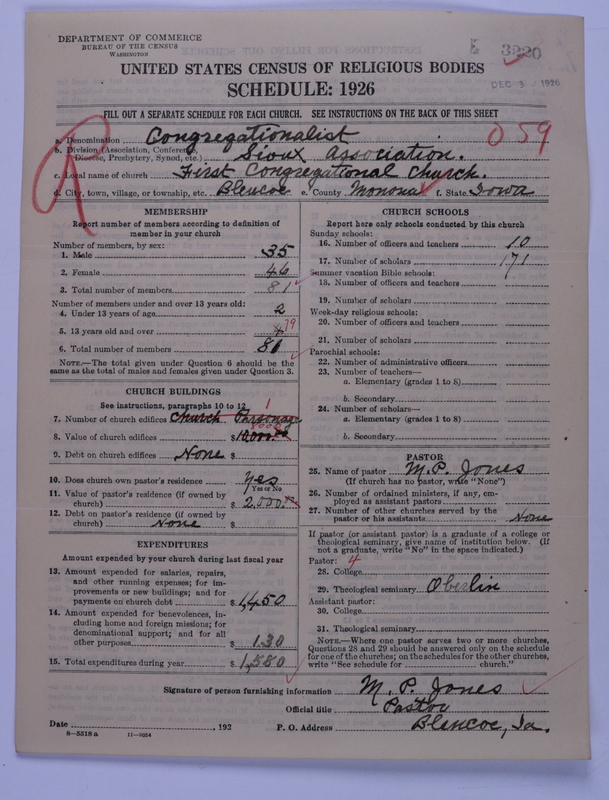 DEPARTMENT OF COMMERCE
BUREAU OF THE CENSUS
WASHINGTON
E 3220
DEC 3 1926
UNITED STATES CENSUS OF RELIGIOUS BODIES
SCHEDULE: 1926
FILL OUT A SEPARATE SCHEDULE FOR EACH CHURCH. SEE INSTRUCTIONS ON THE BACK OF THIS SHEET
059
a. Denomination Congregationalist
b. Division (Association, Conference, Diocese, Presbytery, Synod, etc.) Sioux Association.
c. Local name of church First Congregational Church.
d. City, town, village, or township, etc. Blencoe e. County Monona f. State Iowa
MEMBERSHIP
Report number of members according to definition of member in your church
Number of members, by sex:
1. Male 35
2. Female 46
3. Total number of members 81
Number of members under and over 13 years old:
4. Under 13 years of age 2
5. 13 years old and over 79
6. Total number of members 81
NOTE.—The total given under Question 6 should be the same as the total of males and females given under Question 3.
CHURCH BUILDINGS
See instructions, paragraphs 10 to 12
7. Number of church edifices Church Parsonage 1
8. Value of church edifices $10,000.00 8000
9. Debt on church edifices None $
10. Does church own pastor's residence yes
Yes or No
11. Value of pastor's residence (if owned by church) $ 2,000.00
12. Debt on pastor's residence (if owned by church) None $
EXPENDITURES
Amount expended by church during last fiscal year
13. Amount expended for salaries, repairs, and other running expenses; for improvements or new buildings; and for payments on church debt $ 1,450
14. Amount expended for benevolences, including home and foreign missions; for denominational support; and for all other purposes $ 130
15. Total expenditures during year $ 1,580
CHURCH SCHOOLS
Report here only schools conducted by this church
Sunday schools:
16. Number of officers and teachers 10
17. Number of scholars 171
Summer vacation Bible schools:
18. Number of officers and teachers
19. Number of scholars
Week-day religious schools:
20. Number of officers and teachers
21. Number of scholars
Parochial schools:
22. Number of administrative officers
23. Number of teachers—
a. Elementary (grades 1 to 8)
b. Secondary
24. Number of scholars—
a. Elementary (grades 1 to 8)
b. Secondary
PASTOR
25. Name of pastor M.P. Jones
(If church has no pastor, write "None")
26. Number of ordained ministers, if any, employed as assistant pastors
27. Number of other churches served by the pastor or his assistants None
If pastor (or assistant pastor) is a graduate of a college or theological seminary, give name of institution below. (If not a graduate, write "No" in the space indicated.)
Pastor: 4
28. College
29. Theological seminary Oberlin
Assistant pastor:
30. College
31. Theological seminary
NOTE.—Where one pastor serves two or more churches, Questions 28 and 29 should be answered only on the schedule for one of the churches; on the schedules for the other churches, write "See schedule for church."
Signature of person furnishing information M. P. Jones
Official title Pastor
Date , 192 P. O. Address Blencoe, Ia.
8—5518 a 11—9054